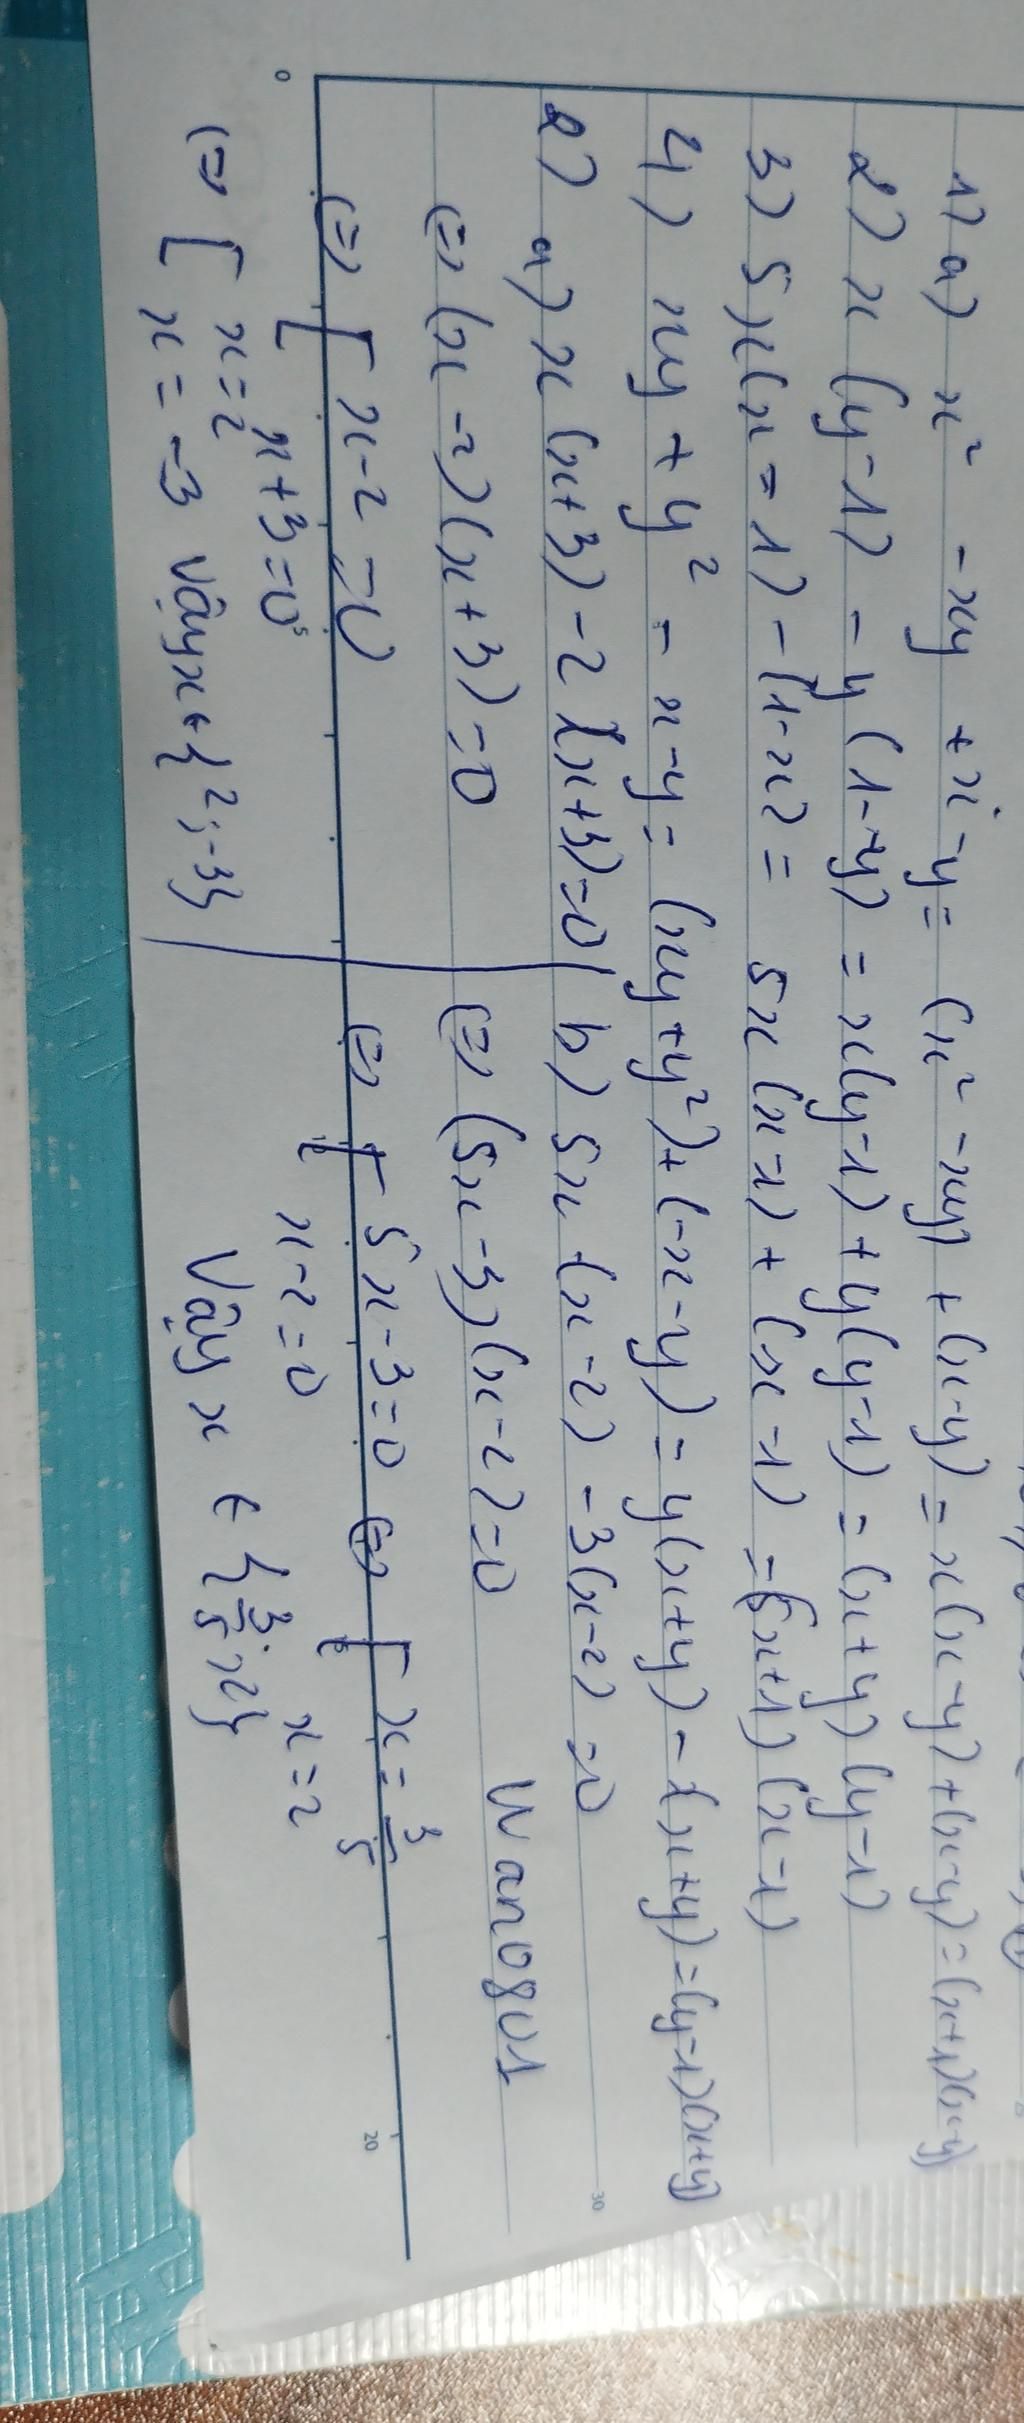 1) a) x² - xy + x - y = (x² - xy) + (x-y) = x(x-y) + (x-y) = (x+1)(x-y)
2) x (y-1) - y (1-y) = x(y-1) + y(y-1) = (x+y) (y-1)
3) 5x(x-1) - (1-x) = 5x (x-1) + (x-1) = (5x+1) (x-1)
4) xy + y² - x-y = (xy+y²)+(-x-y) = y(x+y) - (x+y) = (y-1)(x+y)
2) a) x (x+3) - 2 (x+3)=0
(=) (x-2)(x+3)=0
(=) [ x-2=0
x+3=0
(=) [ x=2
x=-3 Vậy x ∈ {2;-3}
b) 5x (x-2) - 3(x-2) =0
(=) (5x-3)(x-2)=0
(=) [ 5x-3=0 (=) [ x=3/5
x-2=0 x=2
Vậy x ∈ {3/5;2}
Wano801
0
5
20
30